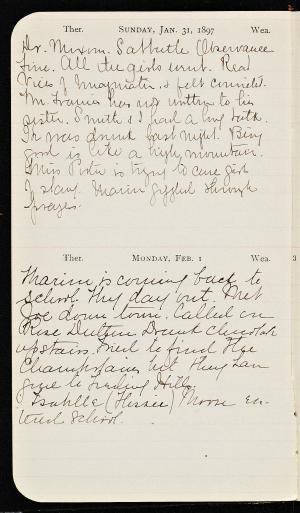 Ther. SUNDAY, JAN. 31, 1897 Wea.
Dr. Mixom. Sabbath Observance
fine. All the girls went. Read
Vices of Imagination & felt convicted.
has not written to his
sister. Smith & I had a long talk.
It was last night. Being
good is like a high mountain.
Miss is trying to cure
of slang. Marian giggled through
prayers.
Ther. MONDAY, FEB. 1 Wea.
3
Marian is coming back to
school. Thy day out. Met
Joe down town. Called on
Rose Dutton. Drank chocolate
upstairs. Tried to find the
Champlains but they had
gone to Hills.
Isabelle (Flissie) Moore en-
tered School.